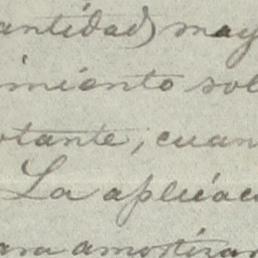 antidad) may
imiento sol
otante, cuan
La aplicac
ara amortizar